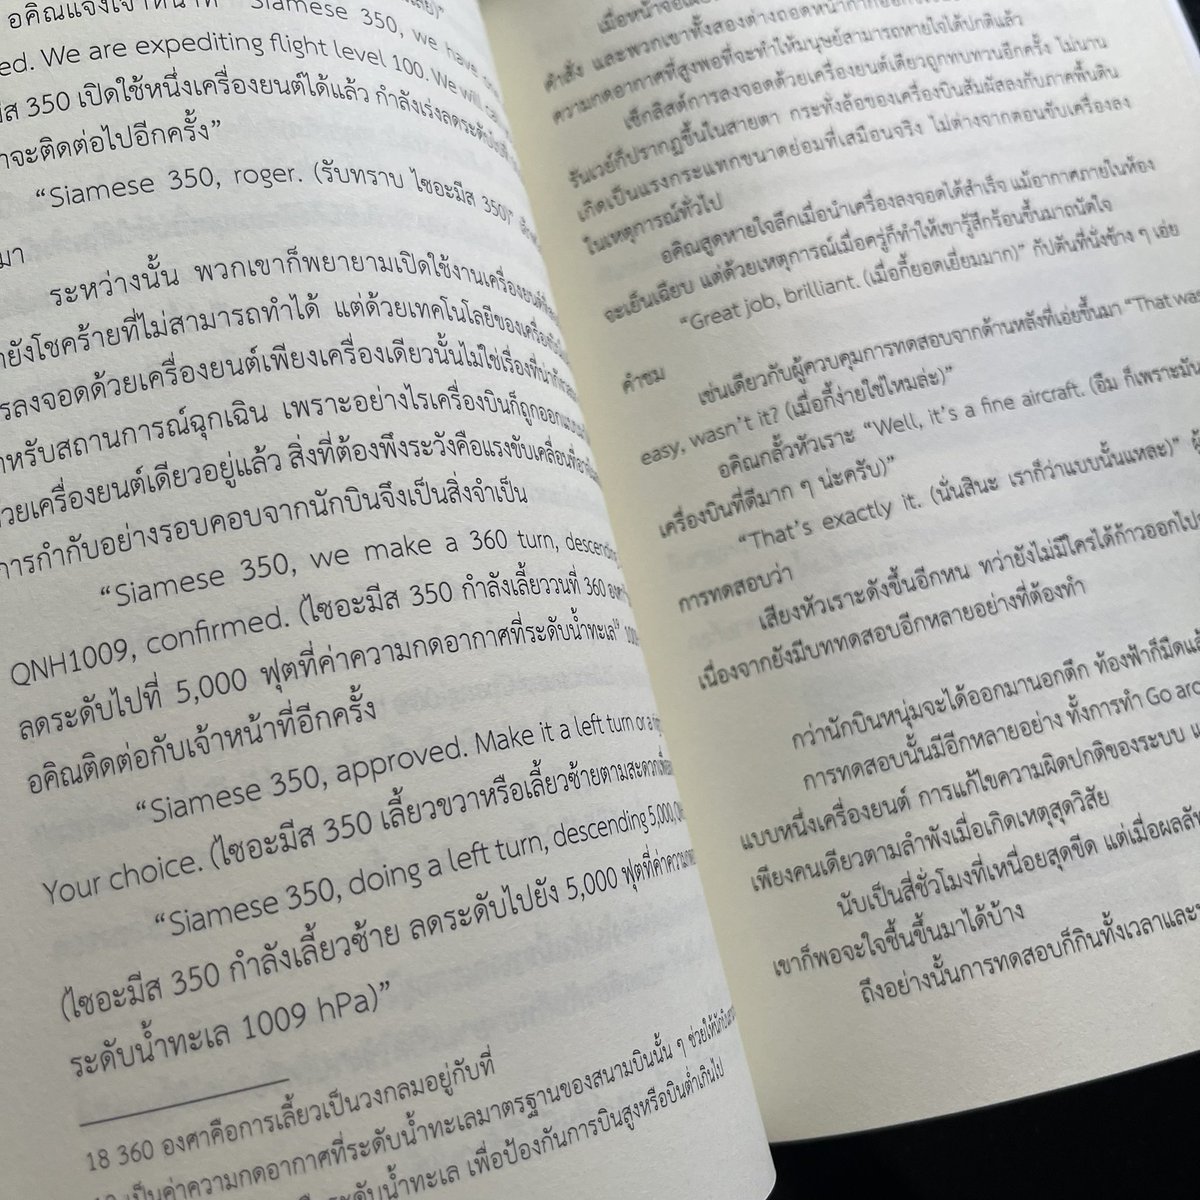 อคิณแจ้งเจ้าหน้าที่ “Siamese 350, we have
ed. We are expediting flight level 100. We will
350 เปิดใช้หนึ่งเครื่องยนต์ได้แล้ว กำลังเร่งลดระดับ
จะติดต่อไปอีกครั้ง”
“Siamese 350, roger. (รับทราบ ไซอะมีส 350)”
มา
ระหว่างนั้น พวกเขาก็พยายามเปิดใช้งานเครื่องยนต์
ยังโชคร้ายที่ไม่สามารถทำได้ แต่ด้วยเทคโนโลยีของเครื่อง
รลงจอดด้วยเครื่องยนต์เพียงเครื่องเดียวนั้นไม่ใช่เรื่องที่น่า
หรับสถานการณ์ฉุกเฉิน เพราะอย่างไรเครื่องบินก็ถูกออกแบบ
วยเครื่องยนต์เดียวอยู่แล้ว สิ่งที่ต้องพึงระวังคือแรงขับเคลื่อนที่
การกำกับอย่างรอบคอบจากนักบินจึงเป็นสิ่งจำเป็น
“Siamese 350, we make a 360 turn, descending
QNH1009, confirmed. (ไซอะมีส 350 กำลังเลี้ยววนที่ 360
ลดระดับไปที่ 5,000 ฟุตที่ค่าความกดอากาศที่ระดับน้ำทะเล
อคิณติดต่อกับเจ้าหน้าที่อีกครั้ง
“Siamese 350, approved. Make it a left turn or a
Your choice. (ไซอะมีส 350 เลี้ยวขวาหรือเลี้ยวซ้ายตามสะดวก
“Siamese 350, doing a left turn, descending 5,000,
(ไซอะมีส 350 กำลังเลี้ยวซ้าย ลดระดับไปยัง 5,000 ฟุตที่ค่าความกด
ระดับน้ำทะเล 1009 hPa)”
18 360 องศาคือการเลี้ยวเป็นวงกลมอยู่กับที่
เป็นค่าความกดอากาศที่ระดับน้ำทะเลมาตรฐานของสนามบินนั้น ๆ ช่วยให้นักบิน
ระดับน้ำทะเล เพื่อป้องกันการบินสูงหรือบินต่ำเกินไป
คำสั่ง และพวกเขาทั้งสองต่างถอดหน้ากาก
ความกดอากาศที่สูงพอที่จะทำให้มนุษย์สามารถหายใจได้ปกติแล้ว
เช็กลิสต์การลงจอดด้วยเครื่องยนต์เดียวถูกทบทวนอีกครั้ง ไม่นาน
รันเวย์ก็ปรากฏขึ้นในสายตา กระทั่งล้อของเครื่องบินสัมผัสลงกับภาคพื้นดิน
เกิดเป็นแรงกระแทกขนาดย่อมที่เสมือนจริง ไม่ต่างจากตอนขับเครื่องลง
ในเหตุการณ์ทั่วไป
อคิณสูดหายใจลึกเมื่อนำเครื่องลงจอดได้สำเร็จ แม้อากาศภายในห้อง
จะเย็นเฉียบ แต่ด้วยเหตุการณ์เมื่อครู่ก็ทำให้เขารู้สึกร้อนขึ้นมาถนัดใจ
“Great job, brilliant. (เมื่อกี้ยอดเยี่ยมมาก)” กัปตันที่นั่งข้าง ๆ เอ่ย
คำชม
เช่นเดียวกับผู้ควบคุมการทดสอบจากด้านหลังที่เอ่ยขึ้นมา “That was
easy, wasn’t it? (เมื่อกี้ง่ายใช่ไหมล่ะ)”
อคิณกลั้วหัวเราะ “Well, it’s a fine aircraft. (อืม ก็เพราะมัน
เครื่องบินที่ดีมาก ๆ น่ะครับ)”
“That’s exactly it. (นั่นสินะ เราก็ว่าแบบนั้นแหละ)”
การทดสอบว่า
เสียงหัวเราะดังขึ้นอีกหน ทว่ายังไม่มีใครได้ก้าวออกไป
เนื่องจากยังมีบททดสอบอีกหลายอย่างที่ต้องทำ
กว่านักบินหนุ่มจะได้ออกมานอกตึก ท้องฟ้าก็มืด
การทดสอบนั้นมีอีกหลายอย่าง ทั้งการทำ Go
แบบหนึ่งเครื่องยนต์ การแก้ไขความผิดปกติของระบบ
เพียงคนเดียวตามลำพังเมื่อเกิดเหตุสุดวิสัย
นับเป็นสี่ชั่วโมงที่เหนื่อยสุดขีด แต่เมื่อผล
เขาก็พอจะใจชื้นขึ้นมาได้บ้าง
ถึงอย่างนั้นการทดสอบก็กินทั้งเวลาและ